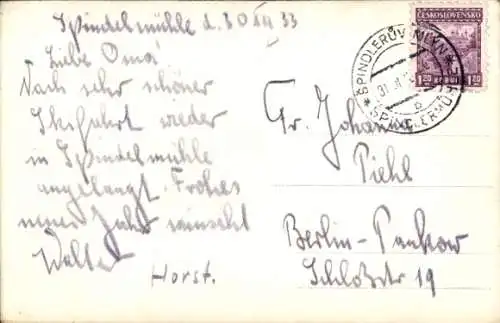 Spindelmühle d. 30 XII 33
Liebe Oma!
Nach sehr schöner
Skifahrt wieder
in Spindelmühle
angelangt. Frohes
neues Jahr wünscht
Walter
Horst.
ČESKOSLOVENSKO
1.20 1.20
SPINDLERŮV MLÝN
31.
b
SPINDLERMÜHLE
Fr. Johanna
Piehl
Berlin-Pankow
Schloßstr 19